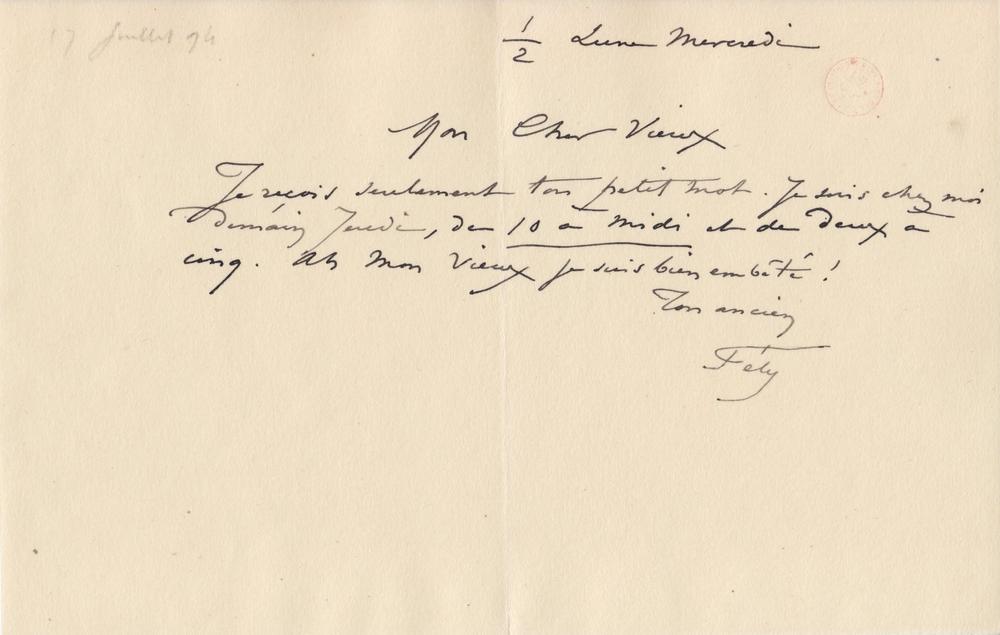 17 Juillet 94
1/2 Lune Mercredi
Mon Cher Vieux
Je reçois seulement ton petit mot. Je suis chez moi
demain Jeudi, de 10 à midi et de deux à
cinq. Ah Mon Vieux je suis bien embêté !
Ton ancien
Fély